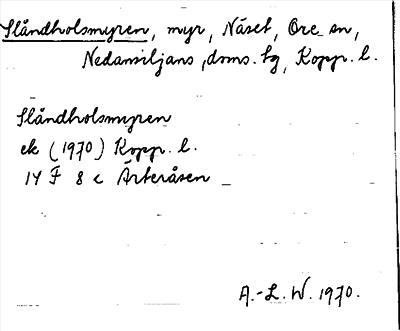 Slåndholsmyren, myr, Näset, Ore sn,
Nedansiljans doms. tg, Kopp. l.
Slåndholsmyren
ek (1970) Kopp. l.
14 F 8 c Ärteråsen
A.-L. W. 1970.